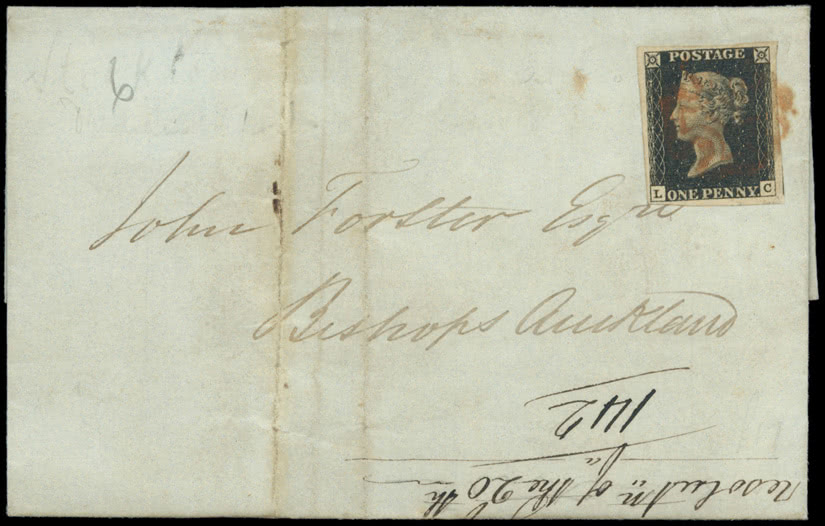 6
POSTAGE
L ONE PENNY C
John Forster Esqre
Bishops Auckland
142
resolutn. of the 20th